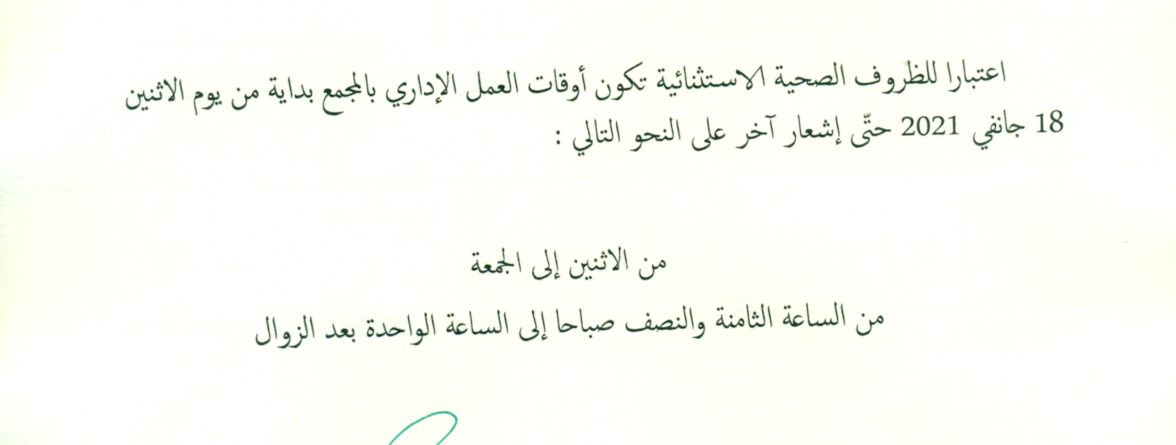 اعتبارا للظروف الصحية الاستثنائية تكون أوقات العمل الإداري بالمجمع بداية من يوم الاثنين
18 جانفي 2021 حتّى إشعار آخر على النحو التالي :
من الاثنين إلى الجمعة
من الساعة الثامنة والنصف صباحا إلى الساعة الواحدة بعد الزوال